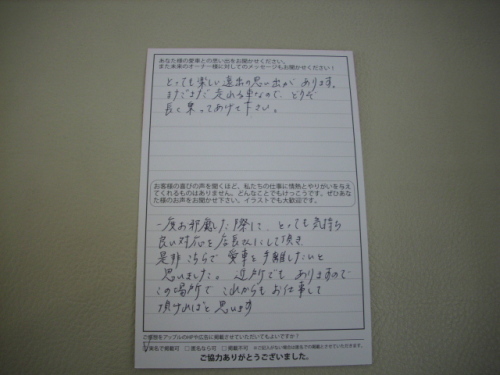 あなた様の愛車との思い出をお聞かせください。
また未来のオーナー様に対してのメッセージもお聞かせください!
とっても楽しい過去の思い出が あります。
まだまだ 走れる車なので、どうぞ
長く乗ってあげて下さい。
お客様の喜びの声を聞くほど、私たちの仕事に情熱とやりがいを与え
てくれるものはありません。どんなことでもけっこうです。ぜひあな
た様のお声をお聞かせ下さい。イラストでも大歓迎です。
一度お邪魔した際に、とっても気持ち
良い対応を店長さんにして頂き
是非こちらで 愛車を手離したいと
思いました。近所でも ありますので
この場所で これからも お仕事して
頂ければと思います
ご感想をアップルのHPや広告に掲載させていただいてもよいですか?
実名で掲載可 □匿名なら可 □掲載不可 ※ご記入がない場合は匿名での掲載とさせていただきます。
ご協力ありがとうございました。